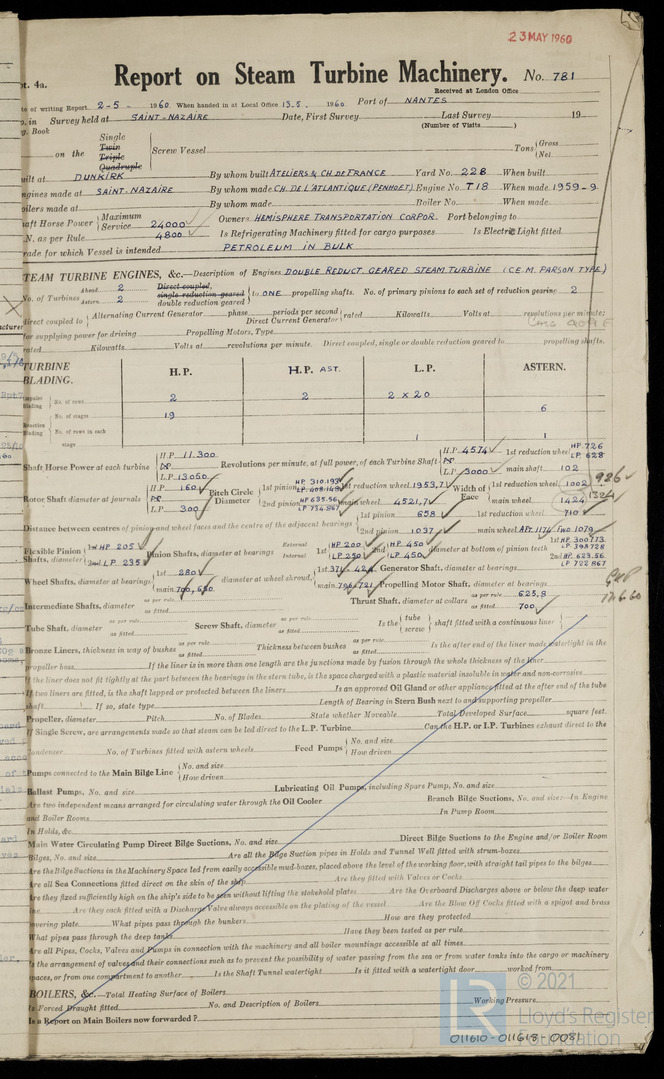 23 MAY 1960
pt. 4a.
Report on Steam Turbine Machinery. No. 781
Received at London Office
te of writing Report. 2-5- 1960. When handed in at Local Office 13.5. 1960 Port of NANTES
o. in Survey held at SAINT-NAZAIRE Date, First Survey Last Survey 19
g. Book (Number of Visits )
on the Single Twin Triple Quadruple Screw Vessel Tons Gross Net
uilt at DUNKIRK By whom built ATELIERS & CH DE FRANCE Yard No. 228 When built
ngines made at SAINT-NAZAIRE By whom made CH. DE L'ATLANTIQUE (PENHOET) Engine No. T18 When made 1959-9
oilers made at By whom made Boiler No. When made
haft Horse Power Maximum Service 24000 Owners HEMISPHERE TRANSPORTATION CORPOR. Port belonging to
.N. as per Rule 4800 Is Refrigerating Machinery fitted for cargo purposes Is Electric Light fitted
rade for which Vessel is intended PETROLEUM IN BULK
TEAM TURBINE ENGINES, &c.—Description of Engines DOUBLE REDUCT GEARED STEAM TURBINE (C.E.M. PARSON TYPE)
No. of Turbines Ahead 2 Astern 2 Direct coupled, single reduction geared double reduction geared to ONE propelling shafts. No. of primary pinions to each set of reduction gearing 2
direct coupled to Alternating Current Generator phase periods per second Direct Current Generator rated Kilowatts Volts at revolutions per minute;
for supplying power for driving Propelling Motors, Type
rated Kilowatts Volts at revolutions per minute. Direct coupled, single or double reduction geared to propelling shafts.
TURBINE BLADING. H.P. H.P. AST. L.P. ASTERN.
Impulse Blading No. of rows 2 2 2 x 20
No. of stages 19 6
Reaction Blading No. of rows in each stage 1 1
Shaft Horse Power at each turbine H.P. 11.300 L.P. 13050 Revolutions per minute, at full power, of each Turbine Shaft H.P. 4574 L.P. 3000 1st reduction wheel HP. 726 LP. 628 main shaft 102
Rotor Shaft diameter at journals H.P. 160 L.P. 300 Pitch Circle Diameter 1st pinion HP 310.193 1st reduction wheel 1953,7 Width of Face 1st reduction wheel 1002
2nd pinion HP 635.56 LP 734.861 main wheel 4521,7 main wheel 1424
Distance between centres of pinion and wheel faces and the centre of the adjacent bearings 1st pinion 658 1st reduction wheel 710
2nd pinion 1037 main wheel AFT. 1174 FWD 1079
Flexible Pinion Shafts, diameter 1st HP 205 2nd LP 235 Pinion Shafts, diameter at bearings External 1st HP 200 Internal LP 250 2nd HP 450 LP 450 diameter at bottom of pinion teeth 1st HP 300.773 LP 398.728 2nd HP. 623.56 LP 722.867
Wheel Shafts, diameter at bearings 1st 280 main 700,680 diameter at wheel shroud, 1st 371-424 main 796-721 Generator Shaft, diameter at bearings Propelling Motor Shaft, diameter at bearings
Intermediate Shafts, diameter as per rule as fitted Thrust Shaft, diameter at collars as per rule 625,8 as fitted 700
Tube Shaft, diameter as per rule as fitted Screw Shaft, diameter as per rule as fitted Is the tube screw shaft fitted with a continuous liner
Bronze Liners, thickness in way of bushes as per rule as fitted Thickness between bushes as per rule as fitted Is the after end of the liner made watertight in the
propeller boss If the liner is in more than one length are the junctions made by fusion through the whole thickness of the liner
If the liner does not fit tightly at the part between the bearings in the stern tube, is the space charged with a plastic material insoluble in water and non-corrosive
If two liners are fitted, is the shaft lapped or protected between the liners Is an approved Oil Gland or other appliance fitted at the after end of the tube
shaft If so, state type Length of Bearing in Stern Bush next to and supporting propeller
Propeller, diameter Pitch No. of Blades State whether Moveable Total Developed Surface square feet.
If Single Screw, are arrangements made so that steam can be led direct to the L.P. Turbine Can the H.P. or I.P. Turbines exhaust direct to the
Condenser No. of Turbines fitted with astern wheels Feed Pumps No. and size How driven
Pumps connected to the Main Bilge Line No. and size How driven
Ballast Pumps, No. and size Lubricating Oil Pumps, including Spare Pump, No. and size
Are two independent means arranged for circulating water through the Oil Cooler Branch Bilge Suctions, No. and size:—In Engine
and Boiler Rooms In Pump Room
In Holds, &c.
Main Water Circulating Pump Direct Bilge Suctions, No. and size Direct Bilge Suctions to the Engine and/or Boiler Room
Bilges, No. and size Are all the Bilge Suction pipes in Holds and Tunnel Well fitted with strum-boxes
Are the Bilge Suctions in the Machinery Space led from easily accessible mud-boxes, placed above the level of the working floor, with straight tail pipes to the bilges
Are all Sea Connections fitted direct on the skin of the ship Are they fitted with Valves or Cocks
Are they fixed sufficiently high on the ship's side to be seen without lifting the stokehold plates Are the Overboard Discharges above or below the deep water
line Are they each fitted with a Discharge Valve always accessible on the plating of the vessel Are the Blow Off Cocks fitted with a spigot and brass
covering plate What pipes pass through the bunkers How are they protected
What pipes pass through the deep tanks Have they been tested as per rule
Are all Pipes, Cocks, Valves and Pumps in connection with the machinery and all boiler mountings accessible at all times
Is the arrangement of valves and their connections such as to prevent the possibility of water passing from the sea or from water tanks into the cargo or machinery
spaces, or from one compartment to another Is the Shaft Tunnel watertight Is it fitted with a watertight door worked from
BOILERS, &c.—Total Heating Surface of Boilers
Is Forced Draught fitted No. and Description of Boilers Working Pressure
Is a Report on Main Boilers now forwarded?
© 2021
Lloyd's Register
Foundation
011610-011618-0081